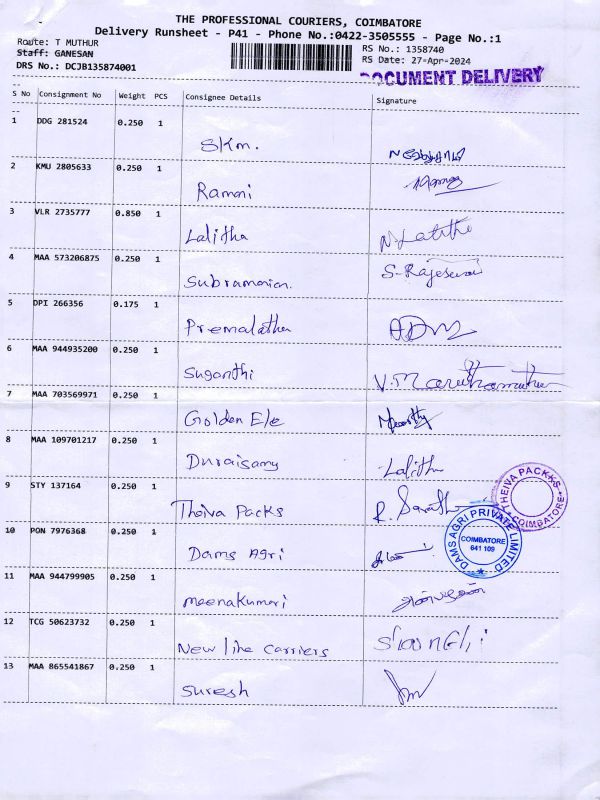 THE PROFESSIONAL COURIERS, COIMBATORE
Delivery Runsheet - P41 - Phone No.:0422-3505555 - Page No.:1
Route: T MUTHUR RS No.: 1358740
Staff: GANESAN RS Date: 27-Apr-2024
DRS No.: DCJB135874001
DOCUMENT DELIVERY
S No Consignment No Weight PCS Consignee Details Signature
1 DDG 281524 0.250 1
SKm.
2 KMU 2805633 0.250 1
Ramani
3 VLR 2735777 0.850 1
Lalitha N. Lalitha
4 MAA 573206875 0.250 1
Subramanian. S. Rajeswari
5 DPI 266356 0.175 1
Premalatha
6 MAA 944935200 0.250 1
Suganthi V. Maruthamuthu
7 MAA 703569971 0.250 1
Golden Ele
8 MAA 109701217 0.250 1
Duraisamy Lalitha
9 STY 137164 0.250 1
Theiva Packs R. Sarath
THEIVA PACKKS
COIMBATORE
10 PON 7976368 0.250 1
Dams Agri
DAMS AGRI PRIVATE LIMITED
COIMBATORE
641 109
11 MAA 944799905 0.250 1
Meenakumari
12 TCG 50623732 0.250 1
New line Carriers
13 MAA 865541867 0.250 1
Suresh